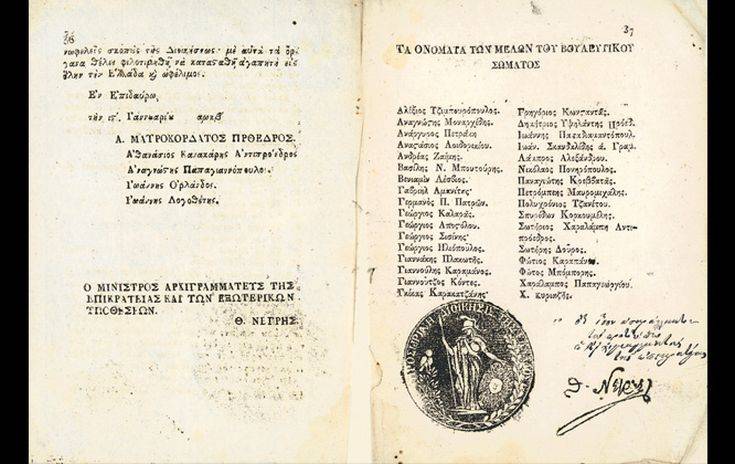 36
νωφελεῖς σκοποὺς τῆς Διοικήσεως· μὲ αὐτὰ τὰ ὄρ
γανα θέλει φιλοτιμηθῇ νὰ καταςαθῇ ἀγαπητὴ εἰς
ὅλην τὴν Ελλάδα ϗ ὠφέλιμος.
Εν Επιδαύρῳ
τὴν Ιαννουαρίου αωκβ
Α. ΜΑΥΡΟΚΟΡΔΑΤΟΣ ΠΡΟΕΔΡΟΣ.
Αθανάσιος Κανακάρης Αντιπρόεδρος
Αναγνώςης Παπαγιαννόπουλος
Ιωάννης Ορλάνδος.
Ιωάννης Λογοθέτης.
Ο ΜΙΝΙΣΤΡΟΣ ΑΡΧΙΓΡΑΜΜΑΤΕΥΣ ΤΗΣ
ΕΠΙΚΡΑΤΕΙΑΣ ΚΑΙ ΤΩΝ ΕΞΩΤΕΡΙΚΩΝ
ΥΠΟΘΕΣΕΩΝ.
Θ. ΝΕΓΡΗΣ.
37
ΤΑ ΟΝΟΜΑΤΑ ΤΩΝ ΜΕΛΩΝ ΤΟΥ ΒΟΥΛΕΥΤΙΚΟΥ
ΣΩΜΑΤΟΣ
Αλέξιος Τζιμπουρόπουλος.
Αναγνώςης Μοναρχίδης.
Ανάργυρος Πετράκη
Αναςάσιος Λοιδορίκου.
Ανδρέας Ζαΐμης.
Βασίλης Ν. Μπουτούρης.
Βενιαμὶν Λέσβιος.
Γαβριὴλ Αμανίτης·
Γερμανὸς Π. Πατρῶν.
Γεώργιος Καλαρᾶς.
Γεώργιος Αποςόλου.
Γεώργιος Σισίνης·
Γεώργιος Ηλιόπουλος.
Γιαννάκης Πλακωτῆς.
Γιαννούλης Καραμάνος.
Γιαννούτζος Κόντες.
Γκίκας Καρακατζάνης·
Γρηγόριος Κωνςαντᾶς.
Δημήτριος Υψηλάντης Πρόεδ.
Ιωάννης Παπαδιαμαντόπουλ.
Ιωάν. Σκανδαλίδης ἀ. Γραμ.
Λάμπρος Αλεξάνδρου.
Νικόλαος Πονηρόπουλος.
Παναγιώτης Κρεββατᾶς.
Πετρόμπεης Μαυρομιχάλης.
Πολυχρόνιος Τζανέτου.
Σπυρίδων Κορκουμέλης.
Σωτήριος Χαραλάμπη Αντι-
πρόεδρος.
Σωτήρης Δοῦρος.
Φώτιος Καραπάνου
Φῶτος Μπόμπορης.
Χαράλαμπος Παπαγεωργίου.
Χ. Κυριαζῆς.
Θ. Νέγρης